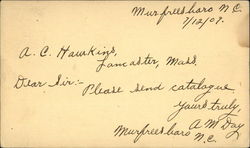 Murfreesboro N.C.
7/12/09.
A. C. Hawkins,
Lancaster, Mass.
Dear Sir:-
Please send catalogue
Yours truly,
A M Day
Murfreesboro
N.C.